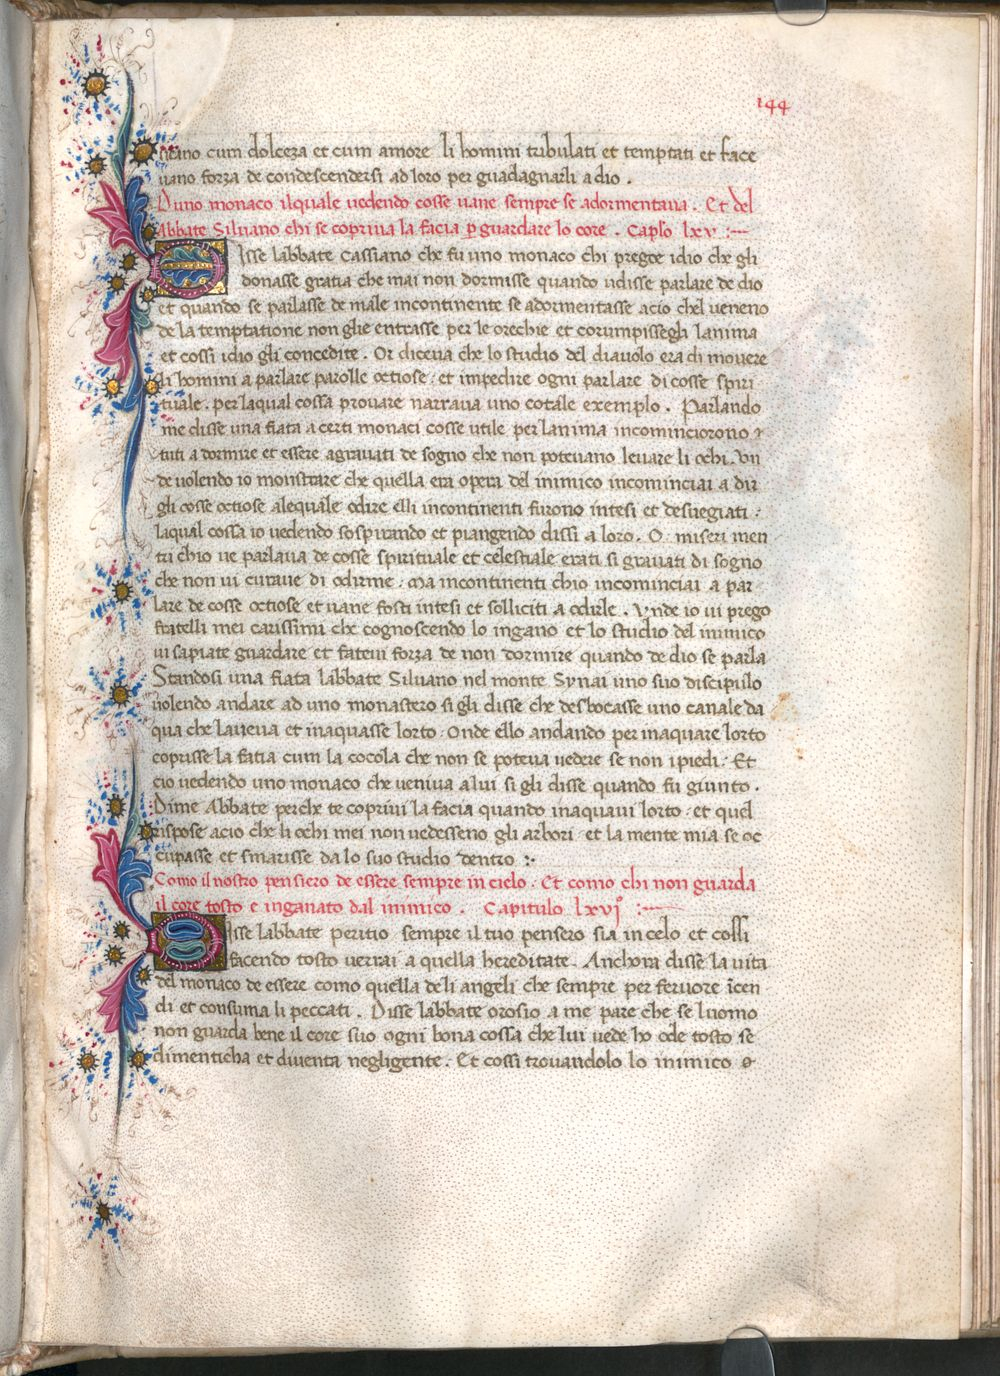 144
uitano cum dolceza et cum amore li homini tribulati et temptati et face
uano forza de condescendersi ad loro per guadagnarli a dio .
Duno monaco ilquale uedendo cosse uane sempre se adormentaua . Et del
Abbate Siluano chi se copriua la facia p guardare lo core . Caplo lxv :—
Disse labbate cassiano che fu uno monaco chi pregoe idio che gli
donasse gratia che mai non dormisse quando udisse parlare de dio
et quando se parlasse de male incontinente se adormentasse acio chel ueneno
de la temptatione non glie entrasse per le orechie et corumpissegli lanima
et cossi idio gli concedite . Or diceua che lo studio del diauolo era di mouere
li homini a parlare parolle octiose : et impedire ogni parlare di cosse spiri
tuale . perlaqual cossa prouare narraua uno cotale exemplo . Parlando
me disse una fiata a certi monaci cosse utile per lanima incominciorono
tuti a dormire et essere agrauati de sogno che non poteuano leuare li ochi . Vn
de uolendo io monstrare che quella era opera del inimico incominciai a dir
gli cosse octiose alequale odire elli incontinenti furono intesi et desuegiati :
laqual cossa io uedendo sospirando et piangendo dissi a loro . O miseri men
tri chio ue parlaua de cosse spirituale et celestiale erati si grauati di sogno
che non ui curaue di odirme : ma incontinenti chio incominciai a par
lare de cosse octiose et uane fosti intesi et solliciti a odirle . Vnde io ui prego
fratelli mei carissimi che cognoscendo lo ingano et lo studio del inimico
ui sapiate guardare et fateui forza de non dormire quando de dio se parla
Standosi una fiata labbate Siluano nel monte Synai uno suo discipulo
uolendo andare ad uno monastero si gli disse che desbocasse uno canale da
qua che laueua et inaquasse lorto : Onde ello andando per inaquare lorto
coprisse la fatia cum la cocola che non se poteua uedere se non i piedi : Et
cio uedendo uno monaco che veniua a lui si gli disse quando fu giunto .
Dime Abbate perche te copriui la facia quando inaquaui lorto : et quel
rispose acio che li ochi mei non uedesseno gli arbori et la mente mia se oc
cupasse et smarisse da lo suo studio dentro :
Como il nostro pensiero de essere sempre in cielo . Et como chi non guarda
il core tosto e inganato dal inimico . Capitulo lxvj :—
Disse labbate peritio sempre il tuo pensero sia in celo et cossi
facendo tosto uerrai a quella hereditate . Anchora disse la uita
del monaco de essere como quella deli angeli che sempre per feruore icen
di et consuma li peccati . Disse labbate orosio a me pare che se luomo
non guarda bene il core suo ogni bona cossa che lui uede ho ode tosto se
dimenticha et diuenta negligente . Et cossi trouandolo lo inimico